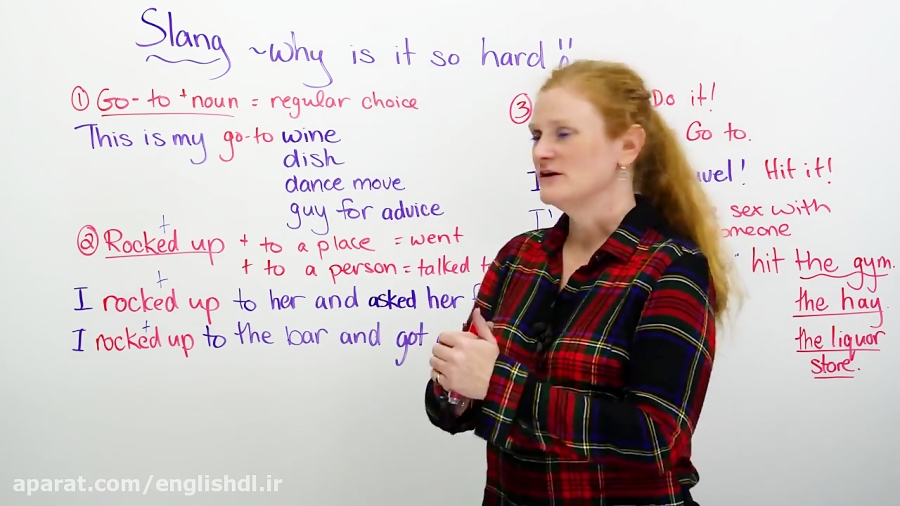 Slang ~why is it so hard !!
① Go-to + noun = regular choice
This is my go-to wine
dish
dance move
guy for advice
② Rocked up + to a place = went
+ to a person = talked
I rocked up to her and asked her
I rocked up to the bar and got
③ Do it!
Go to.
Hit it!
I'
sex with
hit the gym.
the hay.
the liquor
store.
aparat.com/englishdl.ir